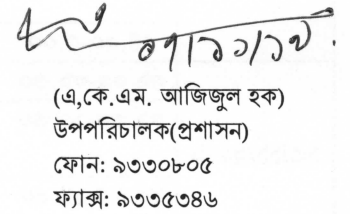 (এ,কে.এম. আজিজুল হক)
উপপরিচালক(প্রশাসন)
ফোন: ৯৩৩০৮০৫
ফ্যাক্স: ৯৩৩৫৩৪৬